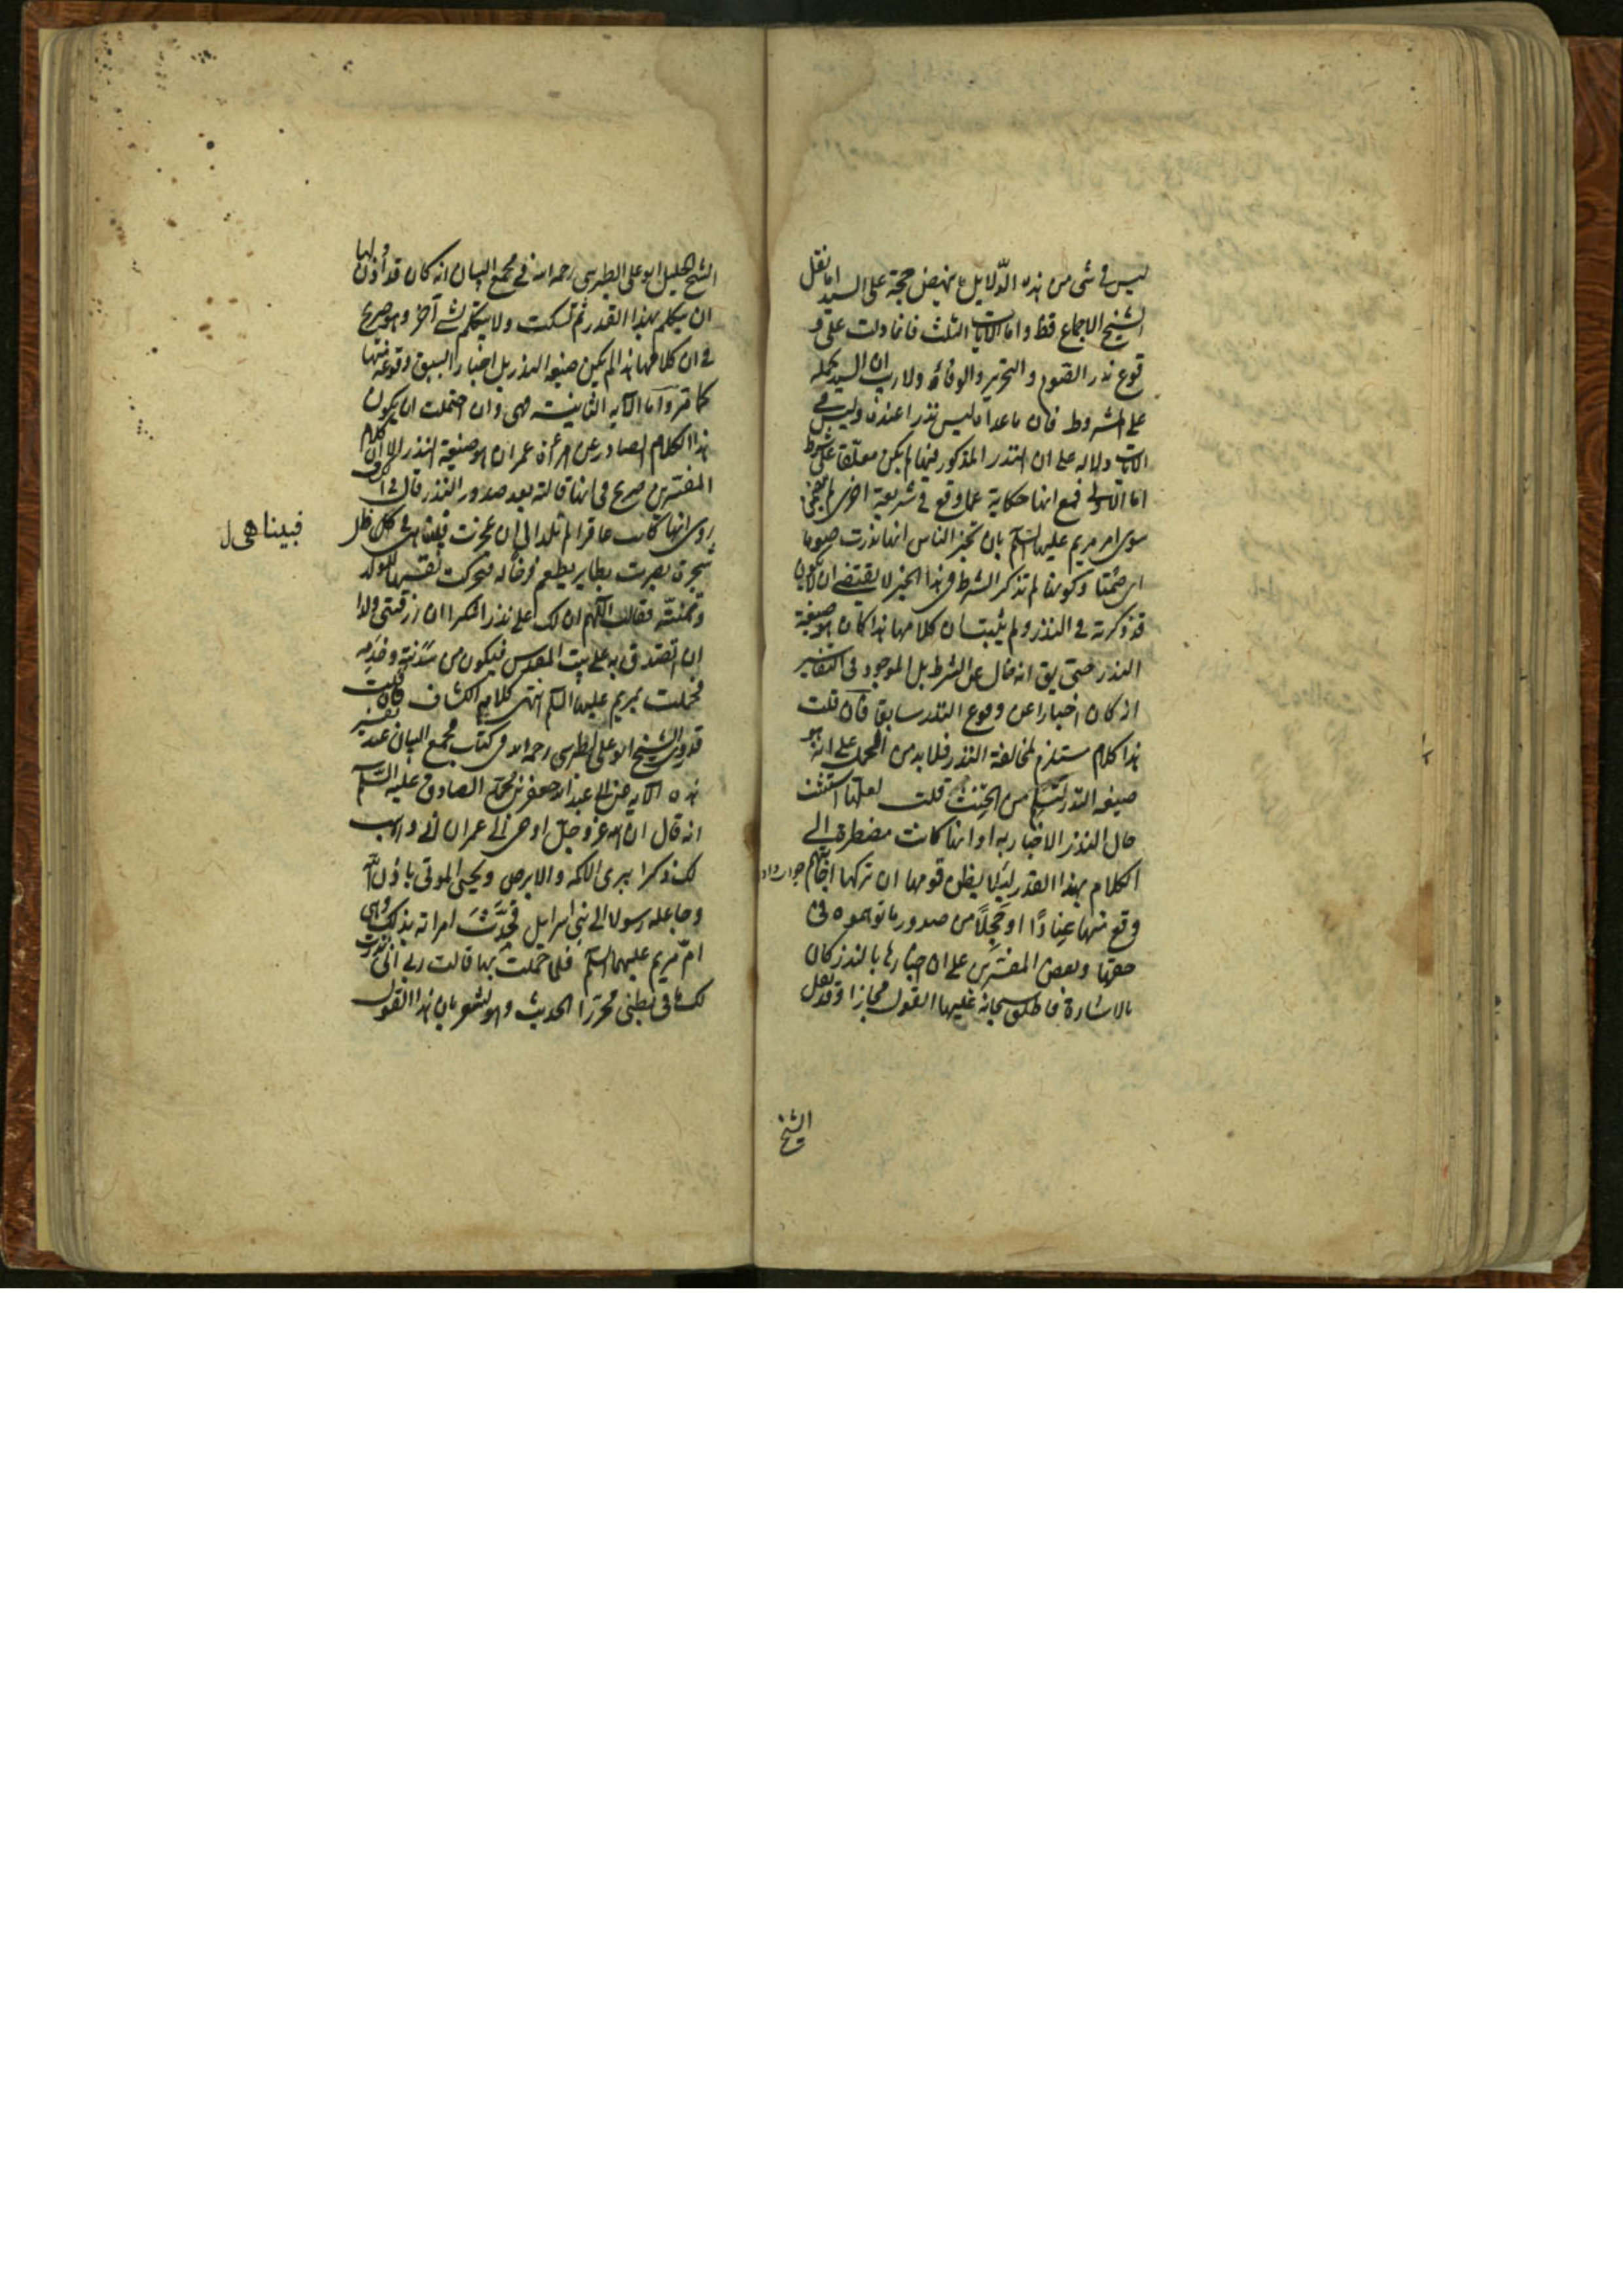 ليس في شئ من هذه الدّلايل ما ينهض حجة على السيد اما نقل
الشيخ الاجماع فظ واما الآيات الثلث فانما دلت على و
قوع نذر الصوم والتحرير والوفاء ولا ريب ان السيد يحمله
على المشروط فان ما عداه ليس نذرا عنده وليس في
الآيات دلاله على ان النذر المذكور فيها لم يكن معلقا على شرط
اما الاولى فمع انها حكاية عما وقع في شريعة اخرى لم يتضمن
سوى امر مريم عليها السلم بان تخبر الناس انها نذرت صوما
اى صمتا وكونها لم تذكر الشرط في هذا الخبر لا يقتضى ان لا يكون
قد ذكرته في النذر ولم يثبت ان كلامها هذا كان هو صيغة
النذر حتى يق انه خال عن الشرط بل الموجود في التفاسير
انه كان اخبارا عن وقوع النذر سابقا فان قلت
هذا كلام مستلزم لمخالفة النذر فلا بد من الحمل على انه هو
صيغه النذر لتسلم من الحنث قلت لعلها استثنت
حال النذر الاخبار به او انها كانت مضطرة الى
الكلام بهذا القدر لئلا يظن قومها ان تركها اجابتهم
وقع منها عنادًا او خجلًا من صدور ما توهموه في
حقها وبعض المفسرين على ان اخبارها بالنذر كان
بالاشارة فاطلق سبحانه عليها القول مجازا وقد نقل
الشيخ
الشيخ الجليل ابو على الطبرسى رحمه الله في مجمع البيان انه كان قد أذن لها
ان تتكلم بهذا القدر ثم تسكت ولا تتكلم بشئ آخر وهو صريح
في ان كلامها هذا لم يكن صيغه النذر بل اخبارا بسبق وقوعه منها
كما مر واما الآيه الثانيه فهى وان احتملت ان يكون
هذا الكلام الصادر عن امرأة عمران هو صيغة النذر الا ان كلام
المفسرين صريح في انها قالته بعد صدور النذر قال في الكشاف
روى انها كانت عاقرا لم تلد الى ان عجزت فبينا هى في ظل
شجرة بصرت بطاير يطعم فرخا له فتحركت نفسها للولد
وتمنته فقالت اللهم ان لك على نذرا شكرا ان رزقتنى ولدا
ان اتصدق به على بيت المقدس فيكون من سدنته وخدمه
فحملت بمريم عليها السلم انتهى كلام الكشاف فان قلت
قد روى الشيخ ابو على الطبرسى رحمه الله في كتاب مجمع البيان عند تفسير
هذه الآيه عن ابى عبد الله جعفر بن محمد الصادق عليه السلم
انه قال ان الله عز وجل اوحى الى عمران انى واهب
لك ذكرا يبرى الاكمه والابرص ويحيى الموتى باذن الله
وجاعله رسولا الى بنى اسرايل فحدّثَ امراته بذلك وهى
امّ مريم عليهما السلم فلما حملت بها قالت رب انى نذرت
لك ما في بطنى محررا الحديث وهو يشعر بان هذا القول
فبينا هى ل